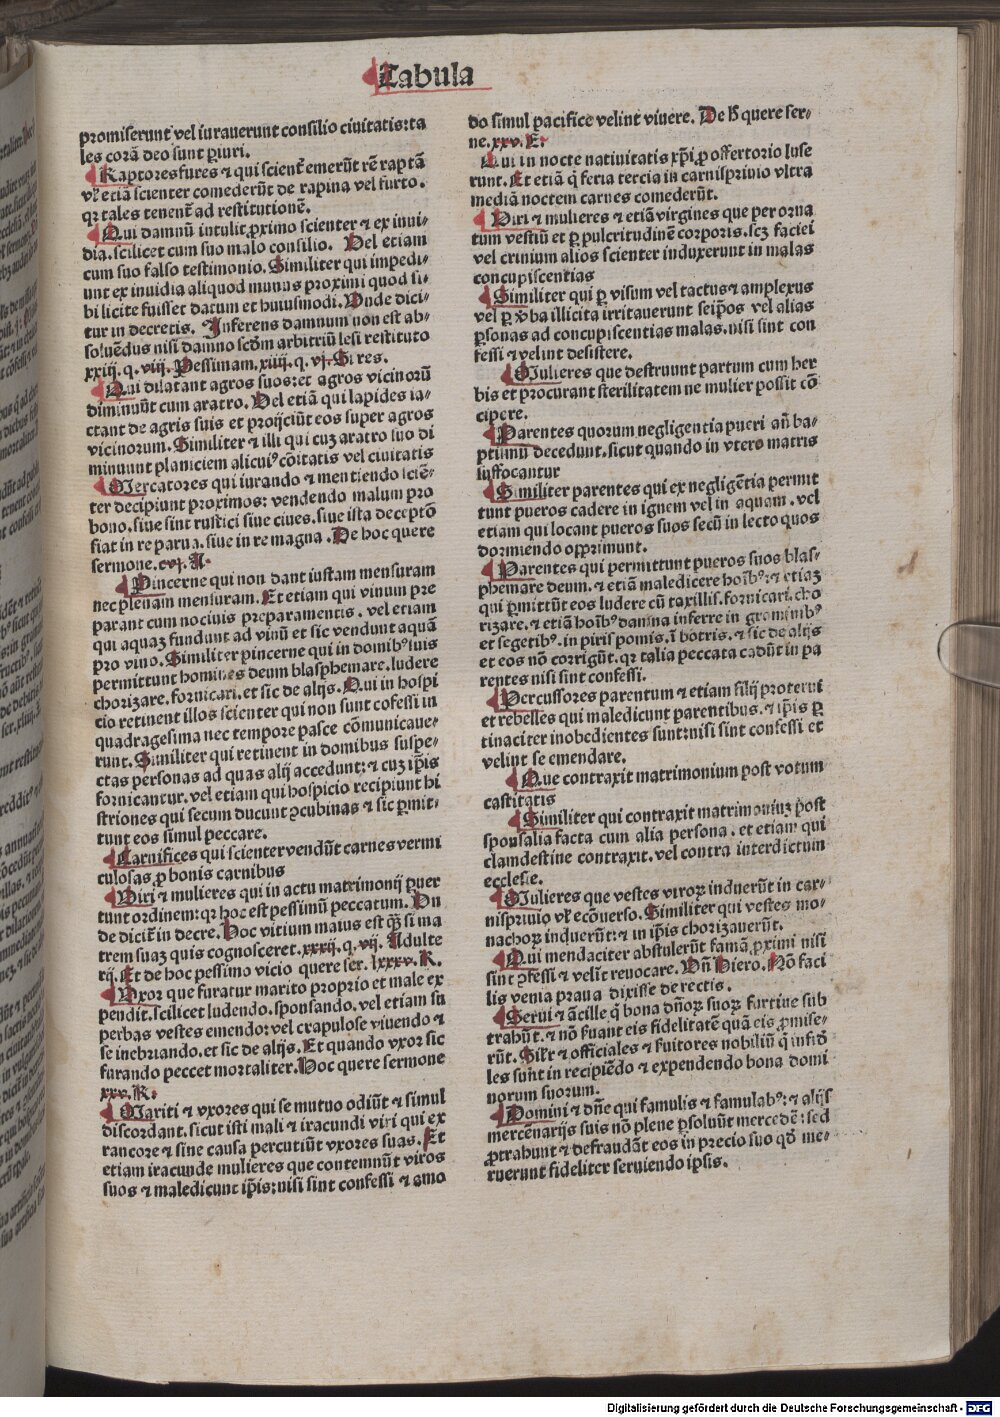 Tabula
promiserunt vel iurauerunt consilio ciuitatis: ta
les corā deo sunt ꝑiuri.
Raptores fures ⁊ qui sciēnt̄ emerūt rē raptā
vl̓ etiā scienter comederūt de rapina vel furto.
qꝛ tales tenent̄ ad restitutionē.
Qui damnū intulit ꝓximo scienter ⁊ ex inui-
dia. scilicet cum suo malo consilio. Vel etiam
cum suo falso testimonio. Similiter qui impedi-
unt ex inuidia aliquod munus proximi quod si-
bi licite fuisset datum et huiusmodi. Unde dici-
tur in decretis. Inferens damnum non est ab-
soluēdus nisi damno scd̄m arbitriū lesi restituto
xxiij. q. viij. Pessimam. xiiij. q. vj. Si res.
Qui dilatant agros suos: et agros vicinorū
diminuūt cum aratro. Vel etiā qui lapides ia-
ctant de agris suis et proijciūt eos super agros
vicinorum. Similiter ⁊ illi qui cuꝫ aratro suo di
minuunt planiciem alicuiꝰ cōitatis vel ciuitatis
Mercatores qui iurando ⁊ mentiendo sciē-
ter decipiunt proximos: vendendo malum pro
bono. siue sint rustici siue ciues. siue ista deceptō
fiat in re parua. siue in re magna. De hoc quere
sermone. cvj. A.
Pincerne qui non dant iustam mensuram
nec plenam mensuram. Et etiam qui vinum pre
parant cum nociuis preparamentis. vel etiam
qui aquaꝫ fundunt ad vinū et sic vendunt aquā
pro vino. Similiter pincerne qui in domibꝰ suis
permittunt homines deum blasphemare. ludere
chorizare. fornicari. et sic de alijs. Qui in hospi
cio retinent illos scienter qui non sunt cōfessi in
quadragesima nec tempore pasce cōmunicaue-
runt. Similiter qui retinent in domibus suspe-
ctas personas ad quas alij accedunt: ⁊ cuꝫ ip̄is
fornicantur. vel etiam qui hospicio recipiunt hi
striones qui secum ducunt ꝯcubinas ⁊ sic ꝑmit-
tunt eos simul peccare.
Carnifices qui scienter vendūt carnes vermi
culosas ꝓ bonis carnibus
Viri ⁊ mulieres qui in actu matrimonij ꝑuer
tunt ordinem: qꝛ hoc est pessimū peccatum. Un
de dicit̄ in decre. Hoc vitium maius est qꝫ̄ si ma
trem suaꝫ quis cognosceret. xxxij. q. vij. Adulte
rij. Et de hoc pessimo vicio quere ser. lxxxv. K.
Uxor que furatur marito proprio et male ex
pendit. scilicet ludendo. sponsando. vel etiam su
perbas vestes emendo: vel crapulose viuendo ⁊
se inebriando. et sic de alijs. Et quando vxor sic
furando peccet mortaliter. Hoc quere sermone
xxv. K.
Mariti ⁊ vxores qui se mutuo odiūt ⁊ simul
discordant. sicut isti mali ⁊ iracundi viri qui ex
rancore ⁊ sine causa percutiūt vxores suas. Et
etiam iracunde mulieres que contemnūt viros
suos ⁊ maledicunt ip̄is: nisi sint confessi ⁊ amo
do simul pacifice velint viuere. De H quere ser-
ne. xxv. E.
Qui in nocte natiuitatis xp̄i ꝓ offertorio luse
runt. Et etiā q̇ feria tercia in carnispriuio vltra
mediā noctem carnes comederūt.
Viri ⁊ mulieres ⁊ etiā virgines que per orna
tum vestiū et ꝑ pulcritudinē corporis. scꝫ faciei
vel crinium alios scienter induxerunt in malas
concupiscentias
Similiter qui ꝑ visum vel tactus ⁊ amplexus
vel ꝑ v̄ba illicita irritauerunt seip̄os vel alias
ꝑsonas ad concupiscentias malas. nisi sint con
fessi ⁊ velint desistere.
Mulieres que destruunt partum cum her
bis et procurant sterilitatem ne mulier possit cō
cipere.
Parentes quorum negligentia pueri an̄ ba-
ptismū decedunt. sicut quando in vtero matris
suffocantur
Similiter parentes qui ex negligētia permit
tunt pueros cadere in ignem vel in aquam. vel
etiam qui locant pueros suos secū in lecto quos
dormiendo opprimunt.
Parentes qui permittunt pueros suos blas-
phemare deum. ⁊ etiā maledicere hoībꝰ: ⁊ etiaꝫ
qui ꝑmittūt eos ludere cū taxillis. fornicari. cho
rizare. ⁊ etiā hoībꝰ damna inferre in graminibꝰ
et segetibꝰ. in piris pomis. ī botris. ⁊ sic de alijs
et eos nō corrigūt. qꝛ talia peccata cadūt in pa
rentes nisi sint confessi.
Percussores parentum ⁊ etiam filij proterui
et rebelles qui maledicunt parentibus. ⁊ ip̄is ꝑ
tinaciter inobedientes sunt: nisi sint confessi et
velint se emendare.
Que contraxit matrimonium post votum
castitatis
Similiter qui contraxit matrimoniuꝫ post
sponsalia facta cum alia persona. et etiam qui
clamdestine contraxit. vel contra interdictum
ecclesie.
Mulieres que vestes viroꝝ induerūt in car-
nispriuio vl̓ ecōuerso. Similiter qui vestes mo-
nachoꝝ induerūt: ⁊ in ip̄is chorizauerūt.
Qui mendaciter abstulerūt famā ꝓximi nisi
sint ꝯfessi ⁊ velīt reuocare. Un̄ Hiero. Nō faci
lis venia praua dixisse de rectis.
Serui ⁊ ācille q̇ bona dn̄oꝝ suoꝝ furtiue sub
trahūt. ⁊ nō ẜuant eis fidelitatē quā eis ꝓmise-
rūt. Silr̄ ⁊ officiales ⁊ ẜuitores nobiliū q̇ infid
les sunt in recipiēdo ⁊ expendendo bona domi
norum suorum.
Domini ⁊ dn̄e qui famulis ⁊ famulabꝰ: ⁊ alijs
mercēnarijs suis nō plene ꝑsoluūt mercedē: sed
ꝓtrahunt ⁊ defraudāt eos in precio suo qd̄ me-
ruerunt fideliter seruiendo ipsis.
Digitalisierung gefördert durch die Deutsche Forschungsgemeinschaft - DFG